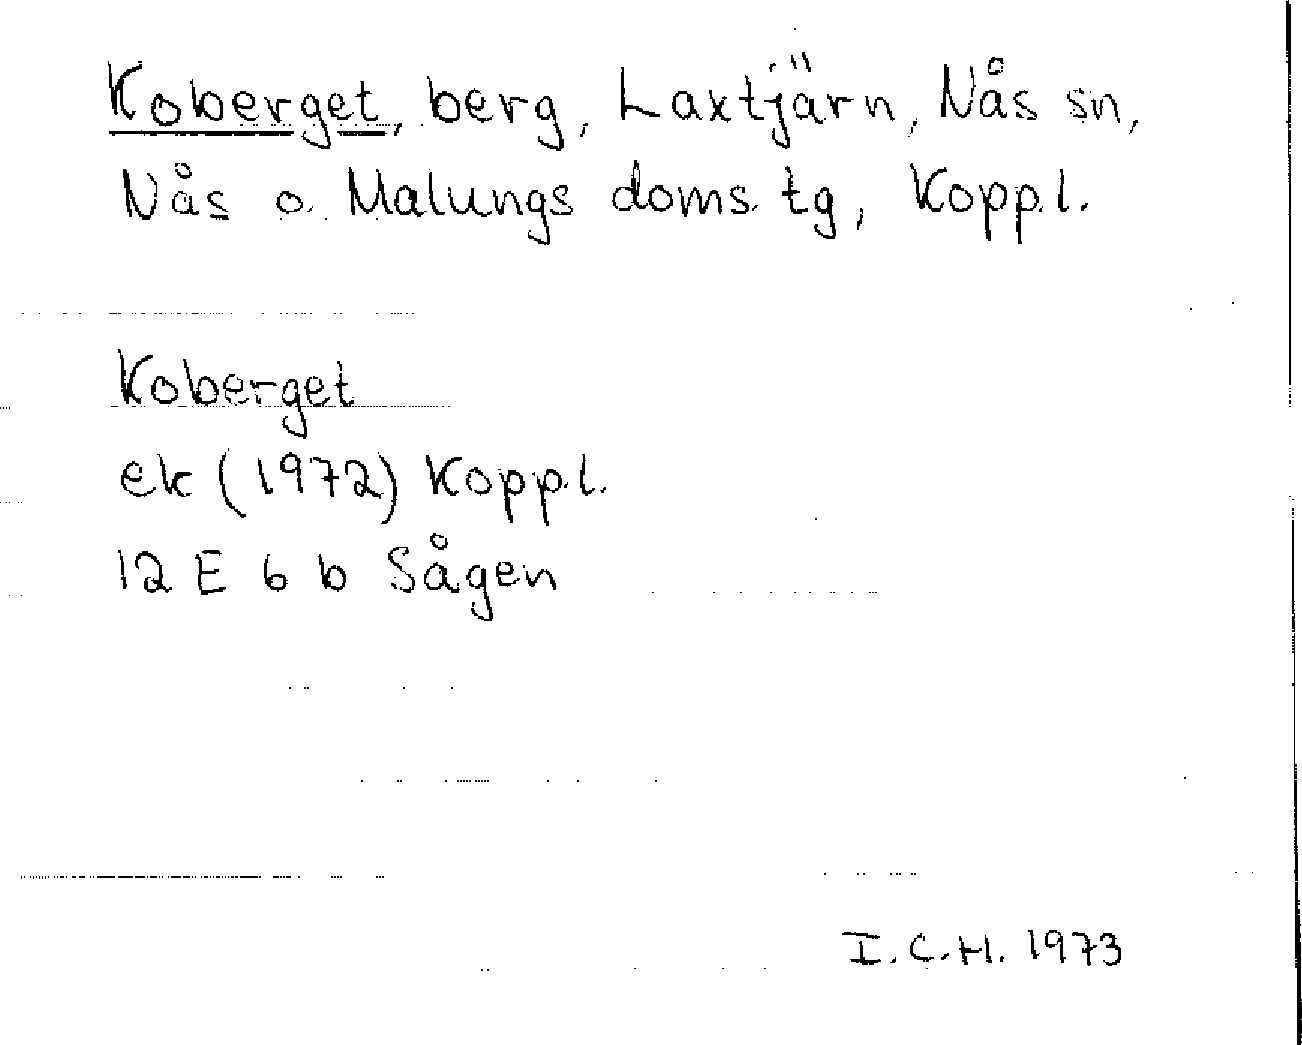 Koberget, berg, Laxtjärn, Nås sn,
Nås o. Malungs doms. tg, Kopp.l.
Koberget
ek (1972) Kopp.l.
12 E 6 b Sågen
I.C.H. 1973